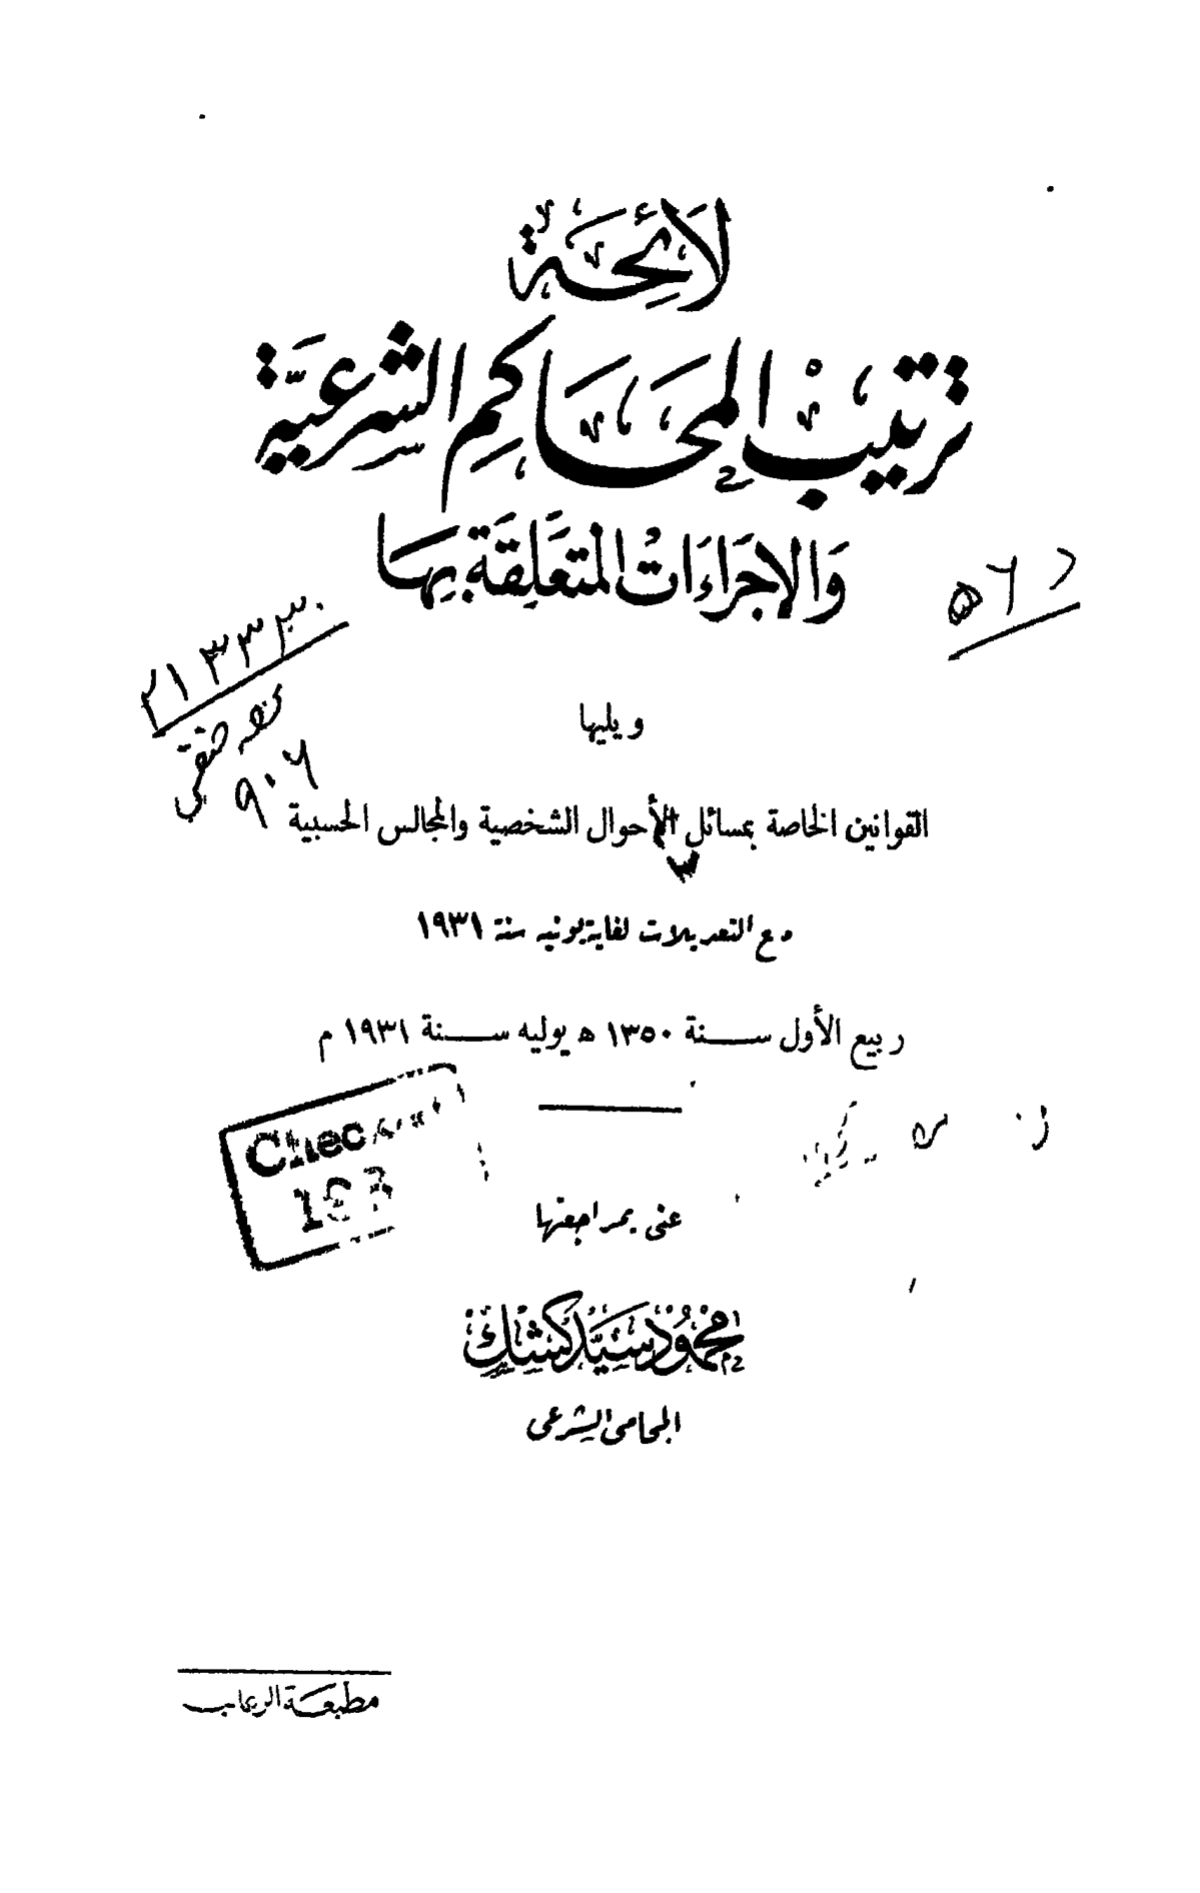 لَائِحَة
ترتيب المحاكم الشرعية
والاجراءات المتعلقة بها
٥٦
٢١٣٣٣
فقه حنفي
٩٠٦
ويليها
القوانين الخاصة بمسائل الأحوال الشخصية والمجالس الحسبية
مع التعديلات لغاية يونيه سنة ١٩٣١
ربيع الأول سنة ١٣٥٠ ه يوليه سنة ١٩٣١ م
عنى بمراجعتها
محمود سيد كشك
المحامى الشرعى
مطبعة الرغائب